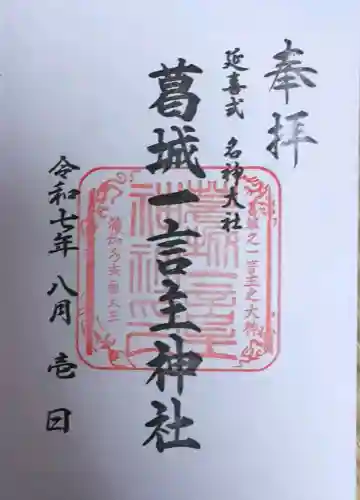 奉拝
延喜式 名神大社
葛城一言主神社
令和七年 八月 壱 日